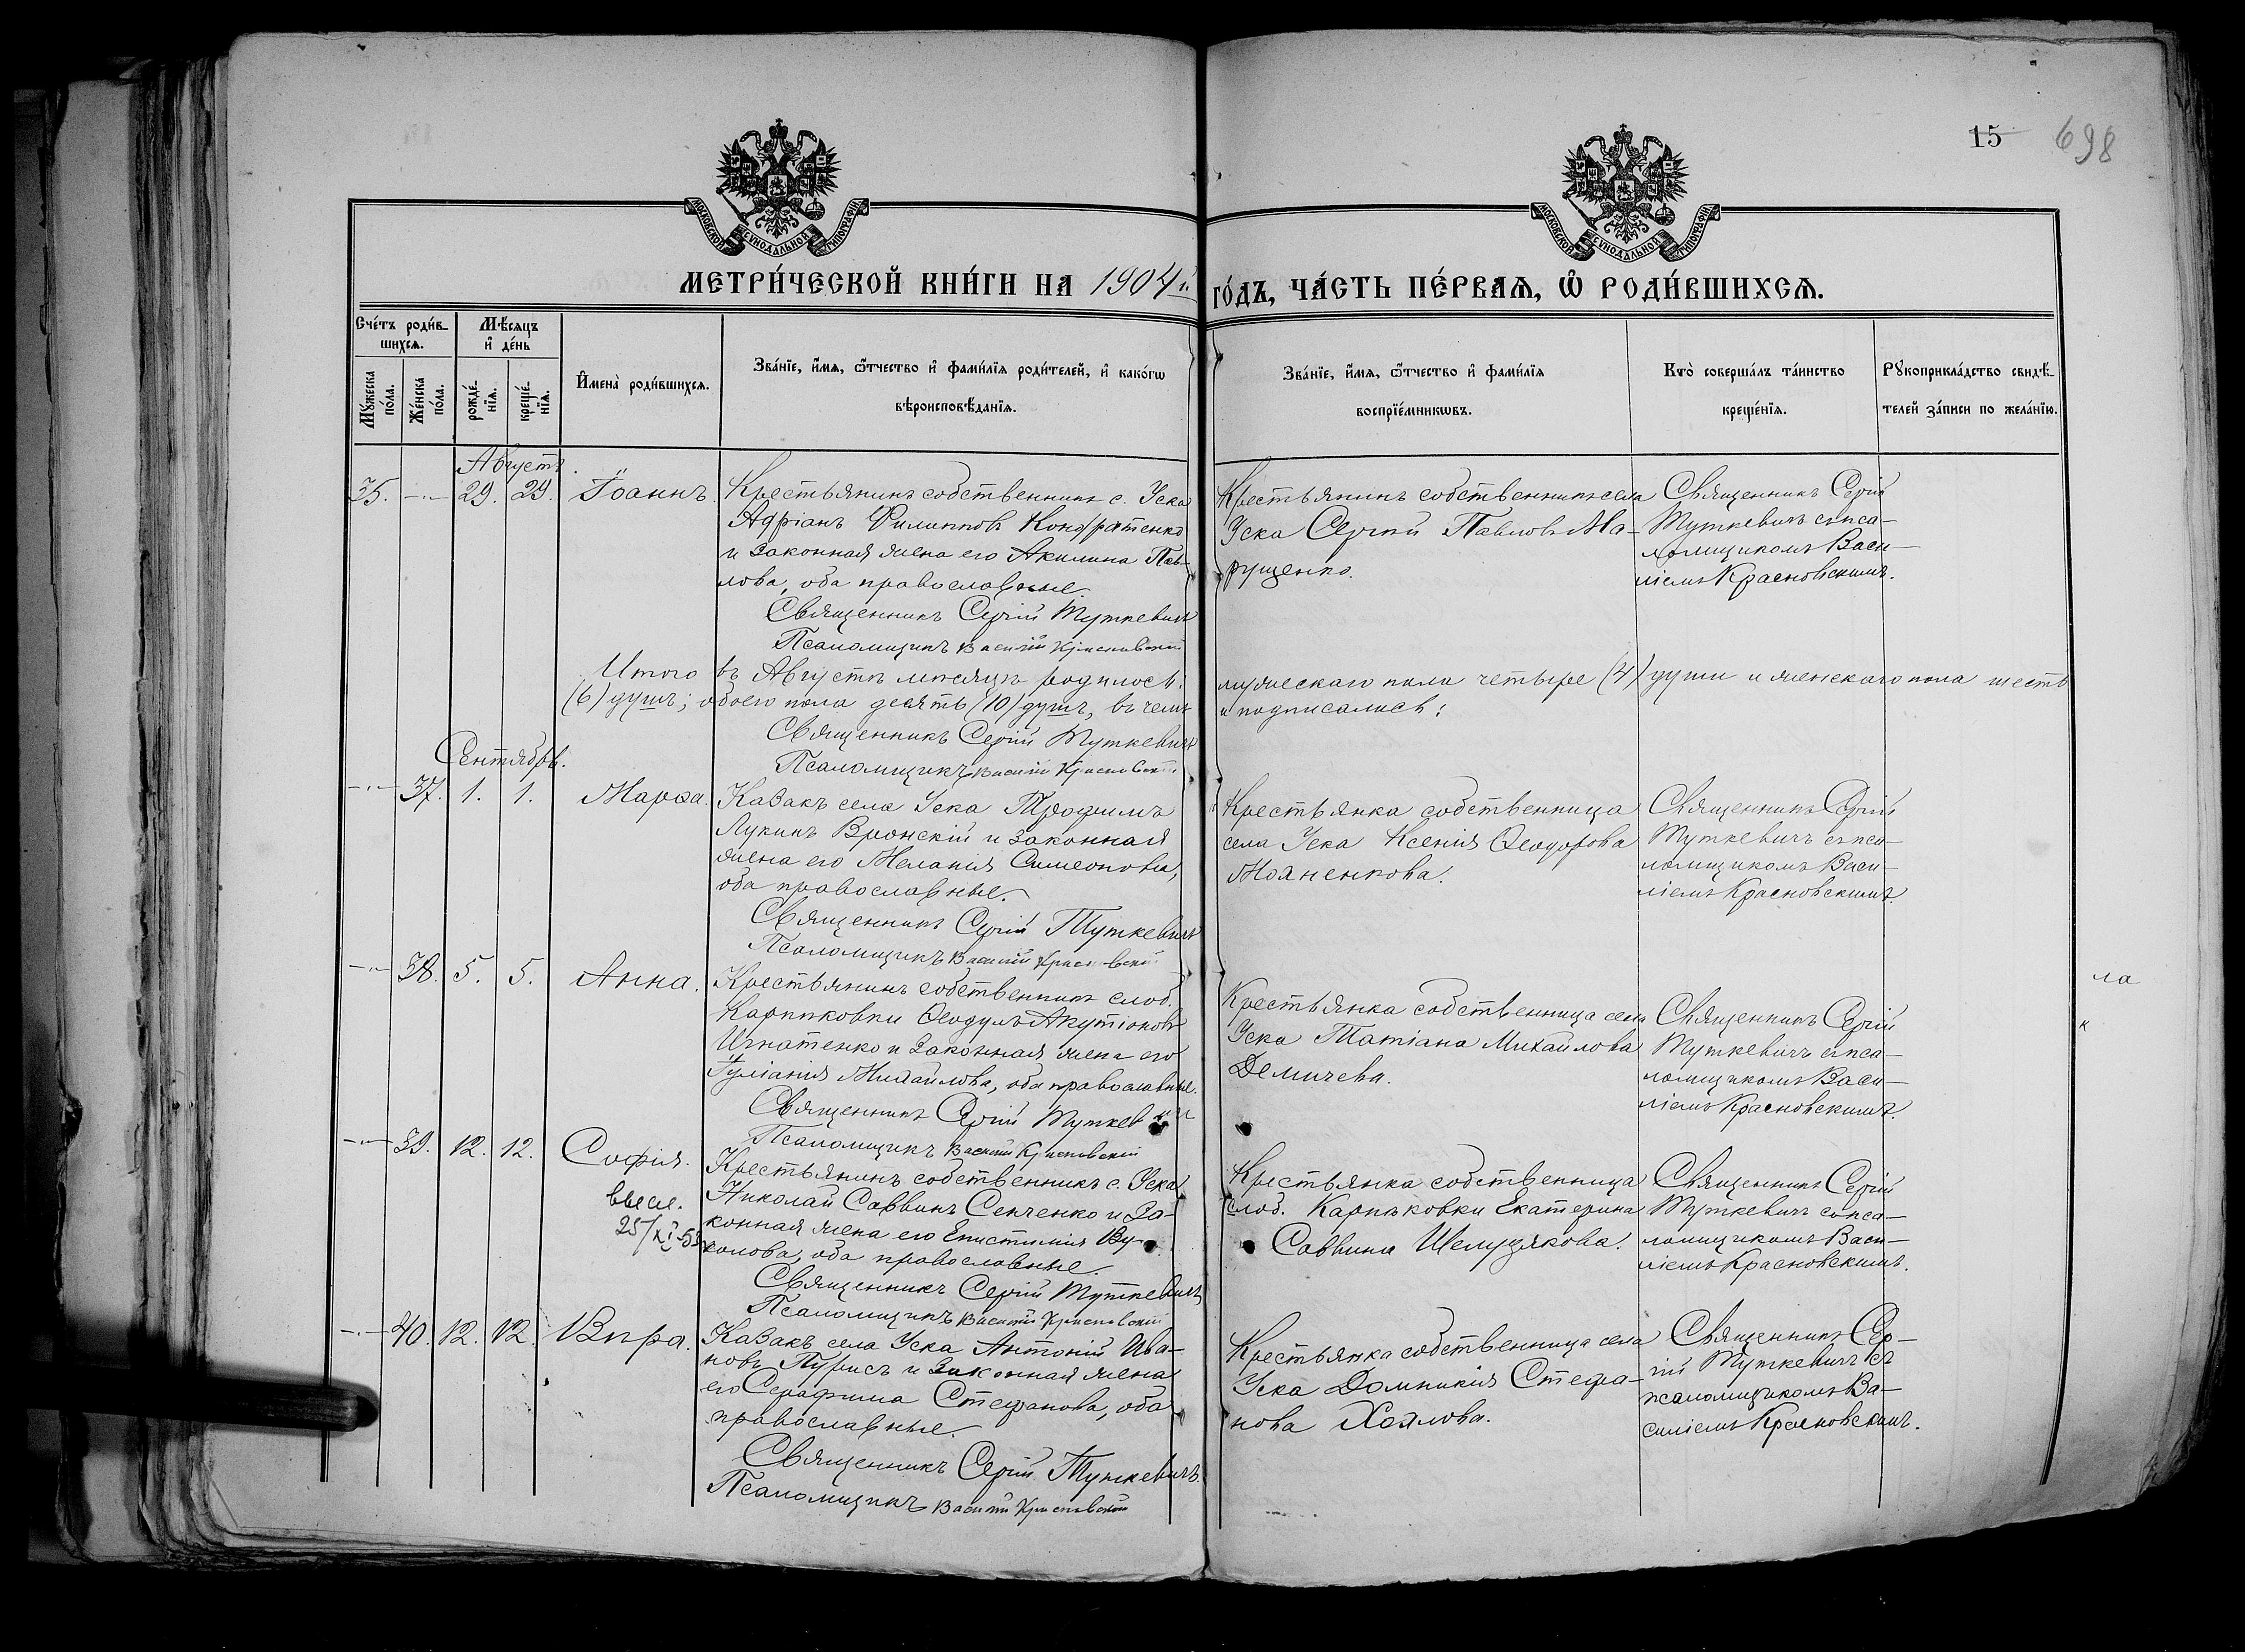 15 698
МОСКОВСКОЙ СУНОДАЛЬНОЙ ТИПОГРАФІИ
МОСКОВСКОЙ СУНОДАЛЬНОЙ ТИПОГРАФІИ
МЕТРИ́ЧЕСКОЙ КНИ́ГИ НА 1904й
ГО́ДЪ, ЧА́СТЬ ПЕ́РВАѦ, Ѽ РОДИ́ВШИХСѦ.
Сче́тъ роди́в-
шихсѧ.
Мꙋ́жеска по́ла.
Же́нска по́ла.
Мѣ́сѧцъ
и҆ де́нь
рожде́нїѧ.
креще́нїѧ.
И҆мена̀ роди́вшихсѧ.
Зва́нїе, и҆́мѧ, ѻ҆́тчество и҆ фами́лїѧ роди́телей, и҆ како́гѡ
вѣроисповѣ́данїѧ.
Зва́нїе, и҆́мѧ, ѻ҆́тчество и҆ фами́лїѧ
воспрїе́мникѡвъ.
Кто̀ соверша́лъ та́инство
креще́нїѧ.
Рꙋкоприкла́дство свидѣ́-
телей за́писи по жела́нїю.
Августъ.
35. -„- 29. 29. Іоаннъ.
Крестьянинъ собственникъ с. Уска
Адріанъ Филипповъ Кондратенко
и законная жена его Акилина Пав-
лова, оба православные.
Священникъ Сергій Туткевичъ
Псаломщикъ Василій Красновскій
Крестьянинъ собственникъ села
Уска Сергій Павловъ Ма-
рущенко.
Священникъ Сергій
Туткевичъ съ пса-
ломщикомъ Васи-
ліемъ Красновскимъ.
Итого въ Августѣ мѣсяцѣ родилось: мужескаго пола четыре (4) души и женскаго пола шесть
(6) душъ; обоего пола десять (10) душъ, въ чемъ и подписались:
Священникъ Сергій Туткевичъ
Псаломщикъ Василій Красновскій
Сентябрь.
-„- 37. 1. 1. Марѳа.
Казакъ села Уска Трофимъ
Лукинъ Вронскій и законная
жена его Меланія Симеонова,
оба православные.
Священникъ Сергій Туткевичъ
Псаломщикъ Василій Красновскій
Крестьянка собственница
села Уска Ксенія Ѳеодорова
Мохненкова.
Священникъ Сергій
Туткевичъ съ пса-
ломщикомъ Васи-
ліемъ Красновскимъ.
-„- 38. 5. 5. Анна.
Крестьянинъ собственникъ слоб.
Карпиковки Ѳеодулъ Акутіоновъ
Игнатенко и законная жена его
Іуліанія Михайлова, оба православные.
Священникъ Сергій Туткевичъ
Псаломщикъ Василій Красновскій
Крестьянка собственница села
Уска Татіана Михайлова
Демичева.
Священникъ Сергій
Туткевичъ съ пса-
ломщикомъ Васи-
ліемъ Красновскимъ.
ла
к
-„- 39. 12. 12. Софія.
высл.
25/XI-53
Крестьянинъ собственникъ с. Уска
Николай Саввинъ Сенченко и за-
конная жена его Епистимія Ву-
колова, оба православные.
Священникъ Сергій Туткевичъ
Псаломщикъ Василій Красновскій
Крестьянка собственница
слоб. Карпиковки Екатерина
Саввина Шелудякова.
Священникъ Сергій
Туткевичъ со пса-
ломщикомъ Васи-
ліемъ Красновскимъ.
-„- 40. 12. 12. Вѣра.
Казакъ села Уска Антоній Ива-
новъ Пурисъ и законная жена
его Серафима Стефанова, оба
православные.
Священникъ Сергій Туткевичъ.
Псаломщикъ Василій Красновскій
Крестьянка собственница села
Уска Домникія Стефа-
нова Хохлова.
Священникъ Сер-
гій Туткевичъ съ
псаломщикомъ Ва-
силіемъ Красновскимъ.